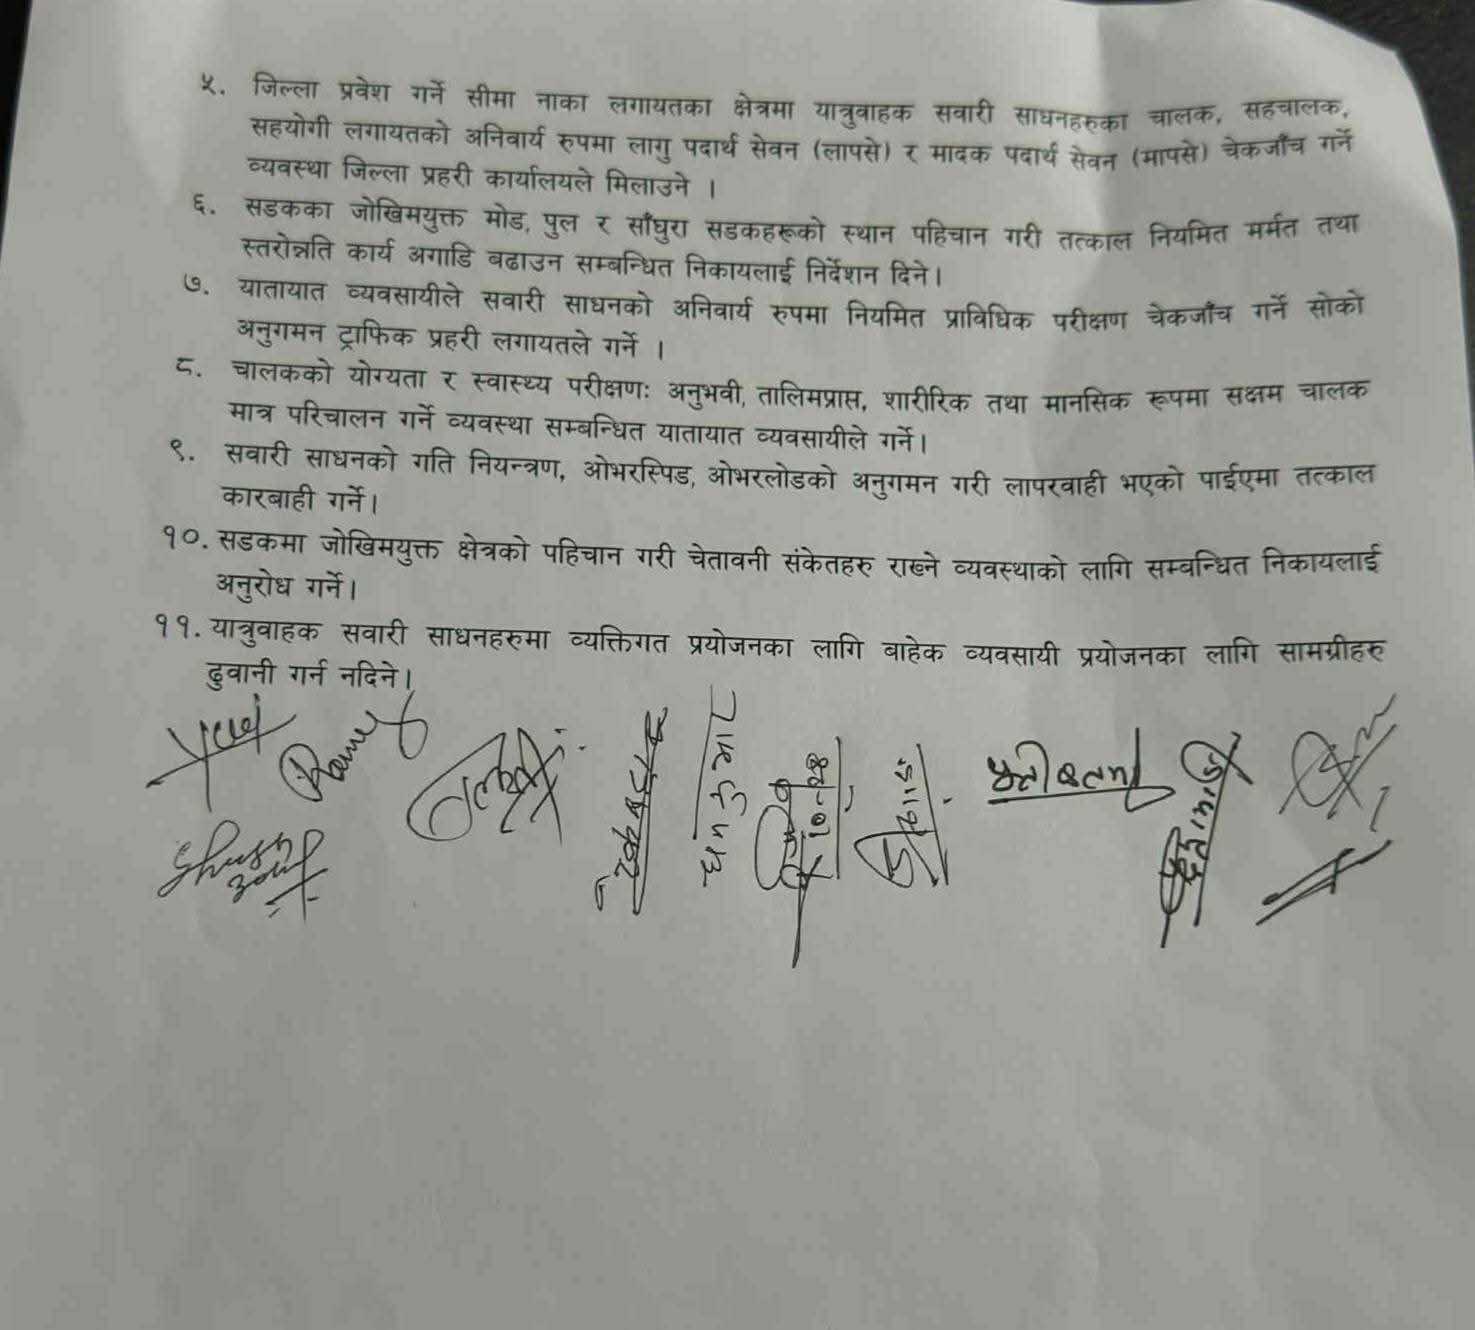 ५. जिल्ला प्रवेश गर्ने सीमा नाका लगायतका क्षेत्रमा यात्रुवाहक सवारी साधनहरुका चालक, सहचालक,
सहयोगी लगायतको अनिवार्य रुपमा लागु पदार्थ सेवन (लापसे) र मादक पदार्थ सेवन (मापसे) चेकजाँच गर्ने
व्यवस्था जिल्ला प्रहरी कार्यालयले मिलाउने ।
६. सडकका जोखिमयुक्त मोड, पुल र साँघुरा सडकहरूको स्थान पहिचान गरी तत्काल नियमित मर्मत तथा
स्तरोन्नति कार्य अगाडि बढाउन सम्बन्धित निकायलाई निर्देशन दिने।
७. यातायात व्यवसायीले सवारी साधनको अनिवार्य रुपमा नियमित प्राविधिक परीक्षण चेकजाँच गर्ने सोको
अनुगमन ट्राफिक प्रहरी लगायतले गर्ने ।
८. चालकको योग्यता र स्वास्थ्य परीक्षणः अनुभवी, तालिमप्राप्त, शारीरिक तथा मानसिक रूपमा सक्षम चालक
मात्र परिचालन गर्ने व्यवस्था सम्बन्धित यातायात व्यवसायीले गर्ने।
९. सवारी साधनको गति नियन्त्रण, ओभरस्पिड, ओभरलोडको अनुगमन गरी लापरवाही भएको पाईएमा तत्काल
कारबाही गर्ने।
१०. सडकमा जोखिमयुक्त क्षेत्रको पहिचान गरी चेतावनी संकेतहरु राख्ने व्यवस्थाको लागि सम्बन्धित निकायलाई
अनुरोध गर्ने।
११. यात्रुवाहक सवारी साधनहरुमा व्यक्तिगत प्रयोजनका लागि बाहेक व्यवसायी प्रयोजनका लागि सामग्रीहरु
ढुवानी गर्न नदिने।